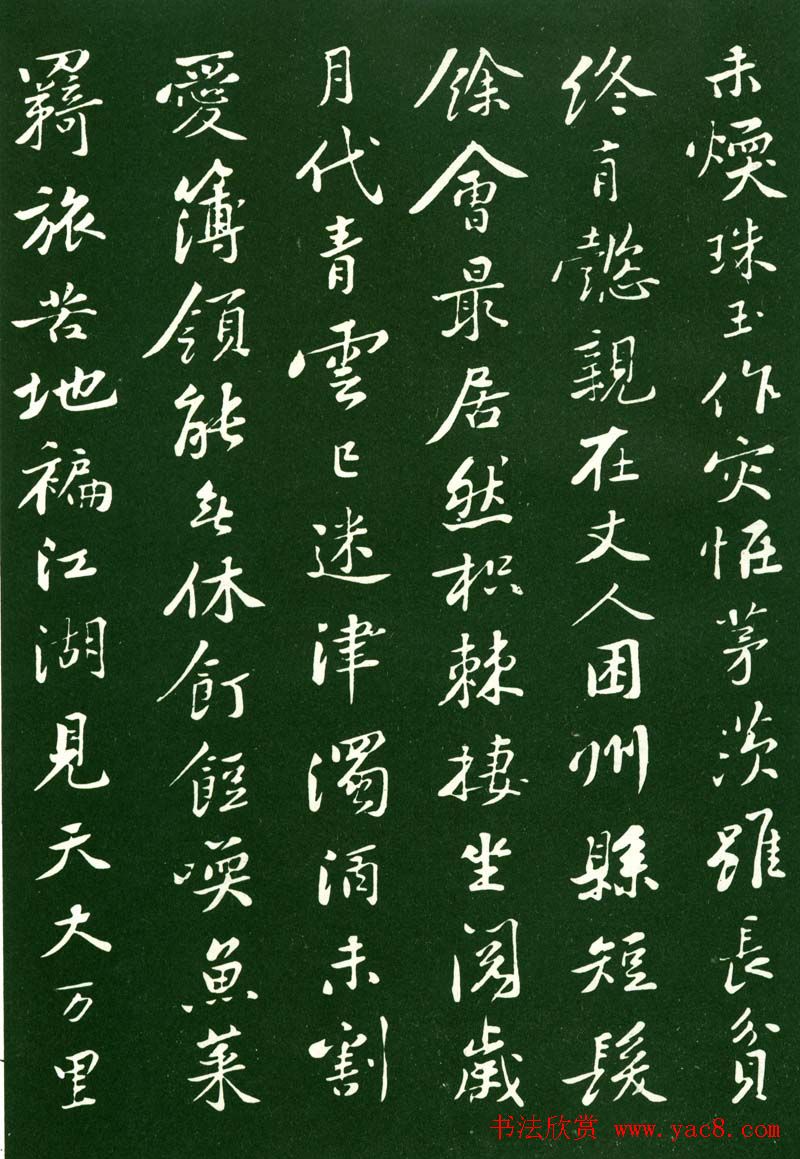 未煗珠玉作灾恠茅茨雖長貧
終有懿親在丈人困州縣短髮
餘會最居然枳棘棲坐閱歲
月代青雲已迷津濁酒未割
愛簿領能無休飣餖喚魚菜
羇旅苦地褊江湖見天大万里
书法欣赏 www.yac8.com